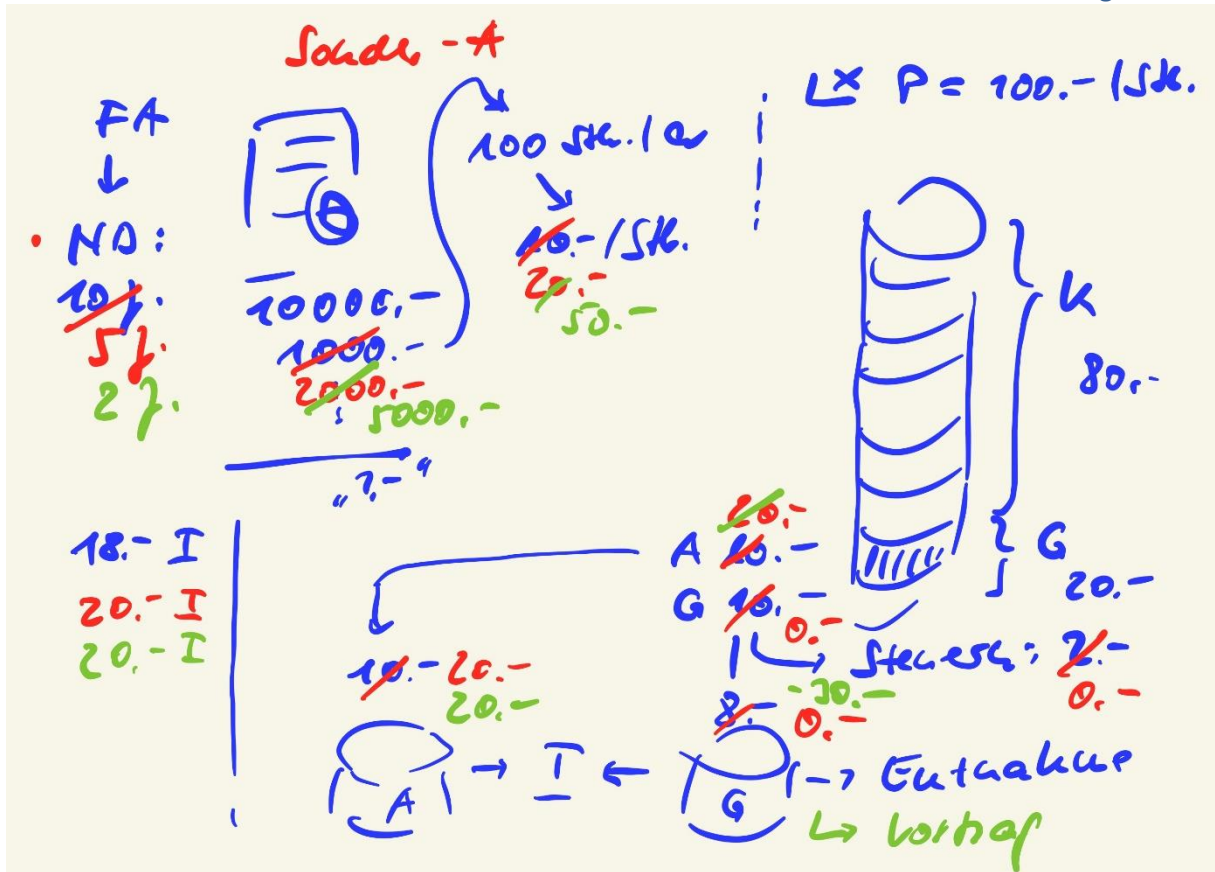 Sonder-A
FA
ND:
10 J.
5 J.
2 J.
10000,-
1000.-
2000,-
5000,-
"?,-"
100 Stk. /
10.- / Stk.
20,-
50.-
P = 100.- / Stk.
K
80,-
G
20.-
18.- I
20.- I
20,- I
20,-
A 10.-
G 10.-
0,-
Steuersch: 2.-
0,-
10.- 20.-
20,-
8.- -30.-
0,-
A → I ← G → Entnahme
↳ Vortrag